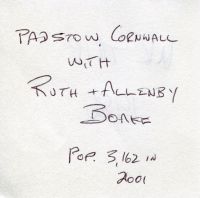 PADSTOW, CORNWALL
WITH
RUTH + ALLENBY
BOAKE
POP. 3,162 IN
2001